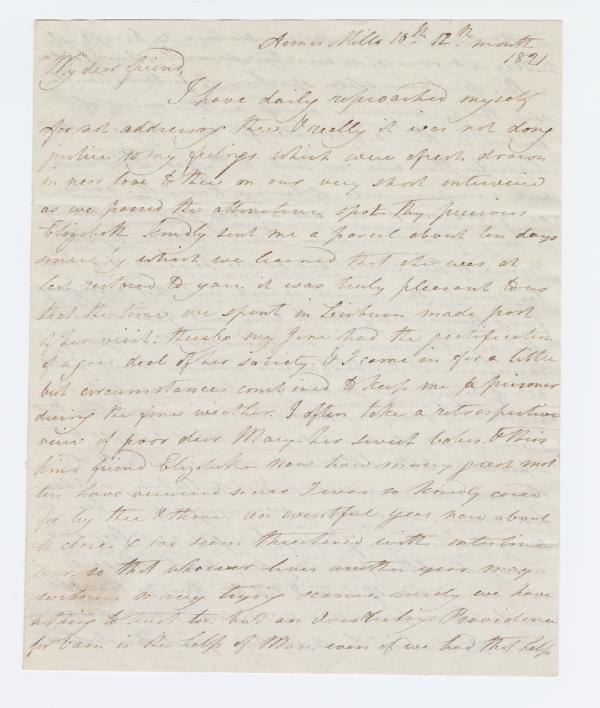 Mills 10th 12th month
1821
My dear friend
I have daily reproached myself
for not addressing thee, & really it was not doing
justice to my feelings which were afresh drawn
in near love to thee on our very short interview
as we passed the attractive spot. Thy precious
Elizabeth kindly sent me a parcel about ten days
since by which we learned that she was at
last restored to you it was truly pleasant to us
that the time we spent in Lisburn made part
of her visit. thereby my Jane had the gratification
of a deal of her society & I came in for a little
but circumstances combined to keep me a prisoner
during the fine weather. I often take a retrospective
view of poor dear Mary her sweet babes & this
kind friend Elizabeth Now how many great mat
ters have occurred since I was so kindly cared
for by thee & thine. an eventful year now about
to close & we seem threatened with intestine
war, so that whoever lives another year may
witness many trying scenes, surely we have
nothing to trust to but an Overruling Providence
for vain is the help of Man even if we had that help